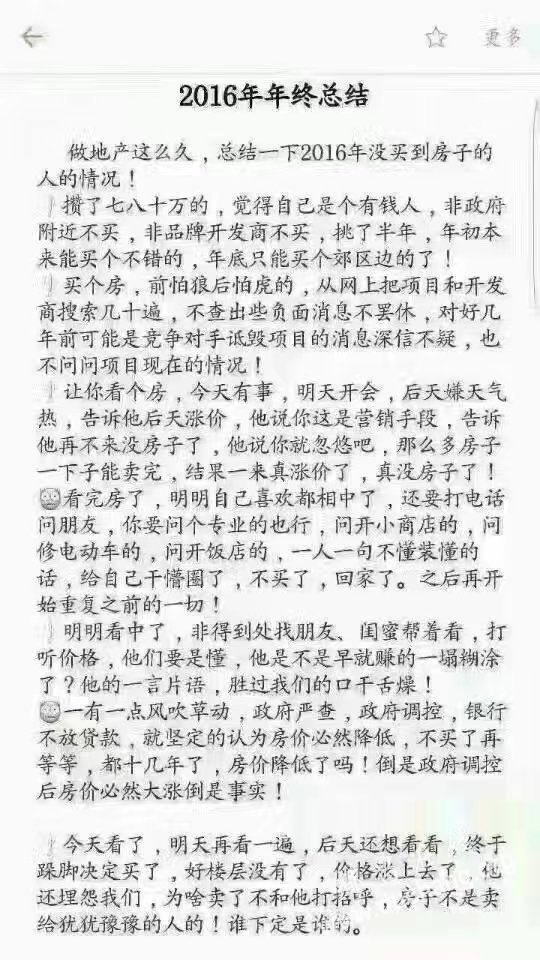 更多
2016年年终总结
做地产这么久，总结一下2016年没买到房子的
人的情况！
攒了七八十万的，觉得自己是个有钱人，非政府
附近不买，非品牌开发商不买，挑了半年，年初本
来能买个不错的，年底只能买个郊区边的了！
买个房，前怕狼后怕虎的，从网上把项目和开发
商搜索几十遍，不查出些负面消息不罢休，对好几
年前可能是竞争对手诋毁项目的消息深信不疑，也
不问问项目现在的情况！
让你看个房，今天有事，明天开会，后天嫌天气
热，告诉他后天涨价，他说你这是营销手段，告诉
他再不来没房子了，他说你就忽悠吧，那么多房子
一下子能卖完，结果一来真涨价了，真没房子了！
看完房了，明明自己喜欢都相中了，还要打电话
问朋友，你要问个专业的也行，问开小商店的，问
修电动车的，问开饭店的，一人一句不懂装懂的
话，给自己干懵圈了，不买了，回家了。之后再开
始重复之前的一切！
明明看中了，非得到处找朋友、闺蜜帮着看，打
听价格，他们要是懂，他是不是早就赚的一塌糊涂
了？他的一言片语，胜过我们的口干舌燥！
一有一点风吹草动，政府严查，政府调控，银行
不放贷款，就坚定的认为房价必然降低，不买了再
等等，都十几年了，房价降低了吗！倒是政府调控
后房价必然大涨倒是事实！
今天看了，明天再看一遍，后天还想看看，终于
跺脚决定买了，好楼层没有了，价格涨上去了，他
还埋怨我们，为啥卖了不和他打招呼，房子不是卖
给犹犹豫豫的人的！谁下定是谁的。